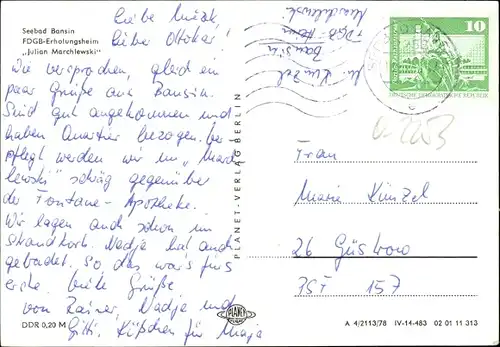 Seebad Bansin
FDGB-Erholungsheim
„Julian Marchlewski"
Liebe
Liebe Ottokar!
Wie versprochen, gleich ein
paar Grüße aus Bansin.
Sind gut angekommen und
haben Quartier bezogen. Ver-
pflegt werden wir im „March-
lewski" schräg gegenüber
der Fontane-Apotheke.
Wir lagen auch schon im
Strandkorb. Nadja hat auch
gebadet. So das war's fürs
erste. Viele Grüße
von Rainer, Nadja und
Gitti. Küßchen für Maja
DDR 0,20 M
M. Künzel
Bansin
FDGB-Heim
Marchlewski
PLANET-VERLAG BERLIN
PLANET
10
DEUTSCHE DEMOKRATISCHE REPUBLIK
Frau
Marie Künzel
26 Güstrow
PSF 157
A 4/2113/78 IV-14-483 02 01 11 313